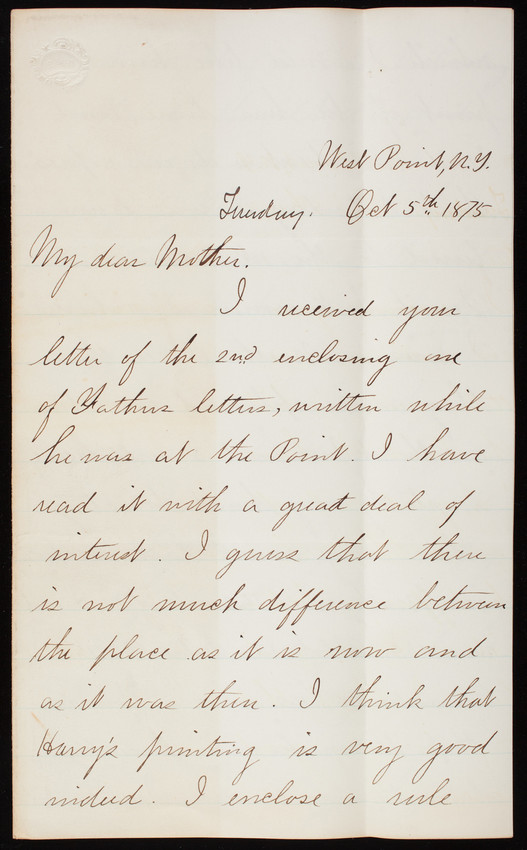 West Point, N.Y.
Tuesday. Oct 5th 1875
My dear Mother.
I received your
letter of the 2nd enclosing one
of Fathers letters, written while
he was at the Point. I have
read it with a great deal of
interest. I guess that there
is not much difference between
the place as it is now and
as it was then. I think that
Harry's printing is very good
indeed. I enclose a rule